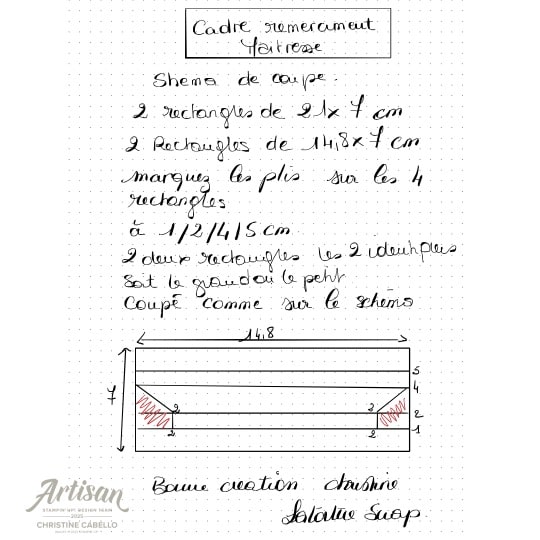 Cadre remerciament
Maitresse
Shema de coupe.
2 rectangles de 21x 7 cm
2 Rectangles de 14,8x7 cm
marquez les plis sur les 4
rectangles
à 1/2/4/5 cm
2 deux rectangles les 2 identiques
Soit le grand ou le petit
Coupé comme sur le schéma
14,8
7
5
4
2 2 2
2 2 1
Bonne creation christine
Artisan
STAMPIN' UP! DESIGN TEAM
2025
CHRISTINE CABELLO